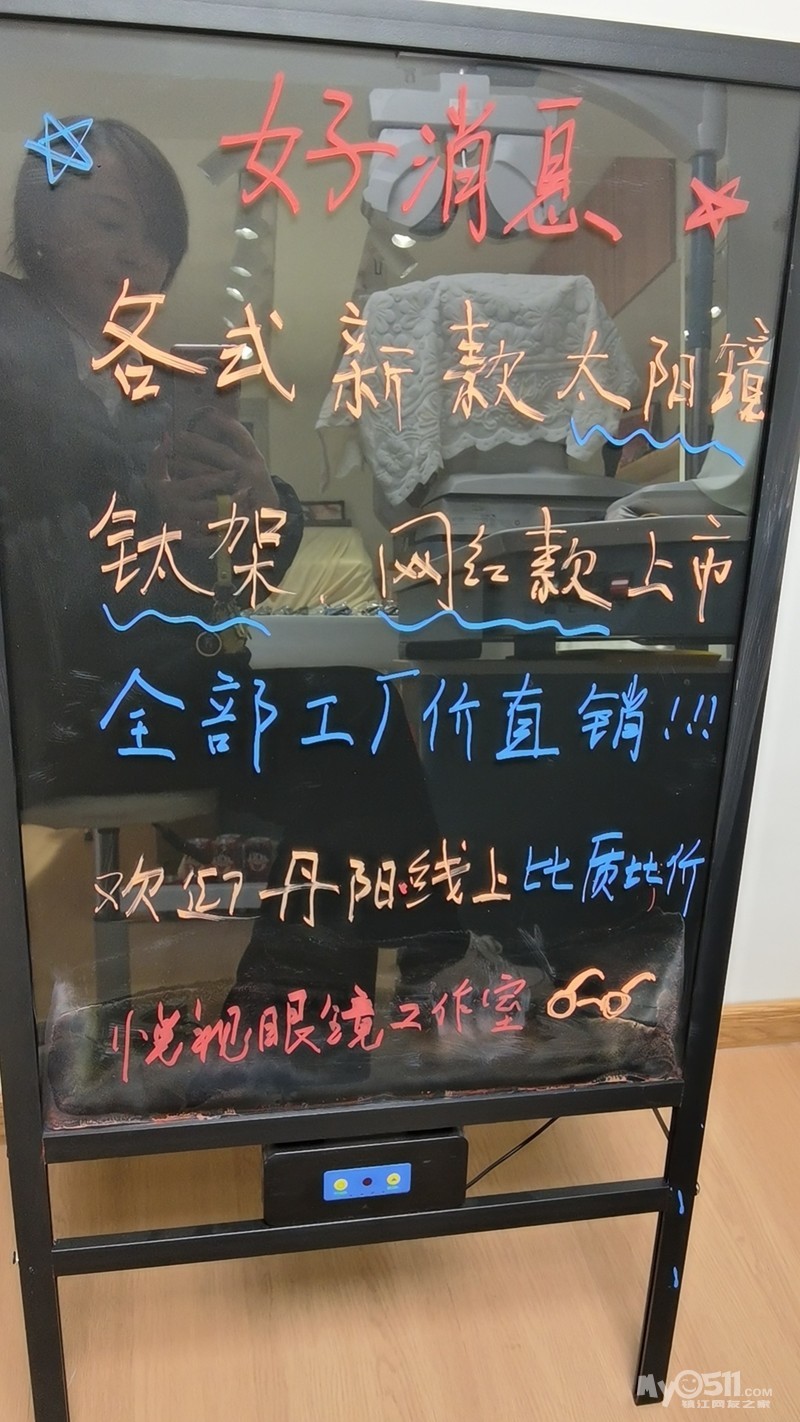 好消息
各式新款太阳镜
钛架、网红款上市
全部工厂价直销!!!
欢迎丹阳.线上比质比价
悦视眼镜工作室
My0511.com
镇江网友之家